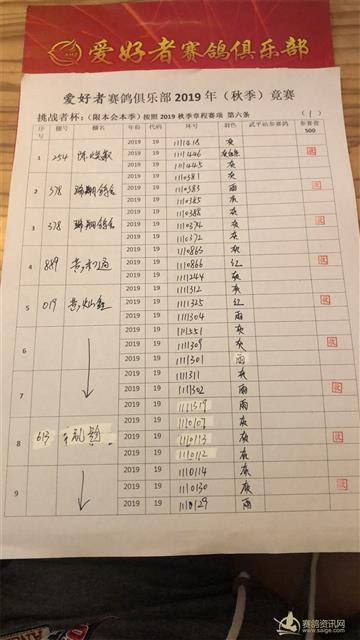 爱好者赛鸽俱乐部
爱好者赛鸽俱乐部 2019 年（秋季）竞赛
挑战者杯：（限本会本季）按照 2019 秋季章程赛项 第六条 （1）
序号 棚号 棚名 年份 代码 环号 羽色 武平站参赛鸽 参赛费 500
1 254 2019 19 1111418 灰
2019 19 1111446
2019 19 1111445 灰
2 378 2019 19 1110381 灰
2019 19 1110383 雨
2019 19 1110385 灰
3 378 2019 19 1110388 灰
2019 19 1110374 灰
2019 19 1110372 灰
4 889 2019 19 1110865 灰
2019 19 1110866 红
2019 19 1111244 灰
5 019 2019 19 1111312 灰
2019 19 1111325 红
2019 19 1111304 雨
6 2019 19 1111551 灰
2019 19 1111309 灰
2019 19 1111301 雨
7 2019 19 1111311 灰
2019 19 1111302 雨
2019 19 1111319 雨
8 613 2019 19 1110107 灰
2019 19 1110113 灰
2019 19 1110112 灰
9 2019 19 1110114 灰
2019 19 1110130 灰
2019 19 1110129 雨
赛鸽资讯网
www.saige.com